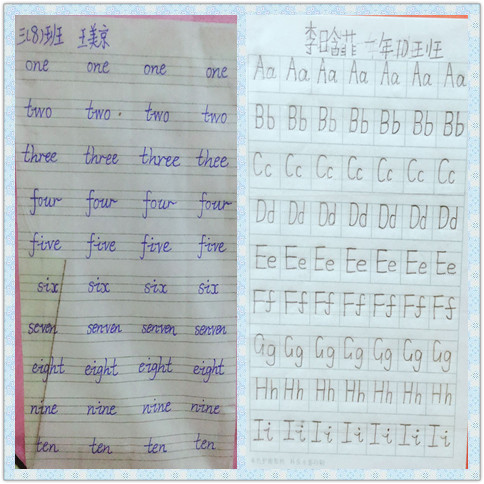 三(8)班 王美京
one one one one
two two two two
three three three thee
four four four four
five five five five
six six six six
seven senven senven senven
eight eight eight eight
nine nine nine nine
ten ten ten ten
李晗菲 二年10班
Aa Aa Aa Aa Aa Aa Aa
Bb Bb Bb Bb Bb Bb Bb
Cc Cc Cc Cc Cc Cc Cc
Dd Dd Dd Dd Dd Dd Dd
Ee Ee Ee Ee Ee Ee Ee
Ff Ff Ff Ff Ff Ff Ff
Gg Gg Gg Gg Gg Gg Gg
Hh Hh Hh Hh Hh Hh Hh
Ii Ii Ii Ii Ii Ii Ii